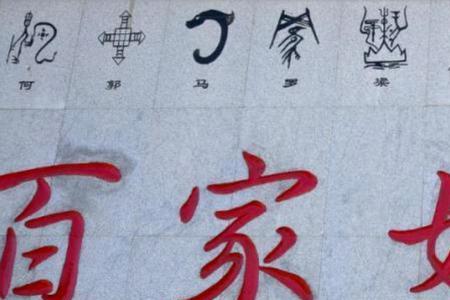 何 郭 马 罗 梁
百家